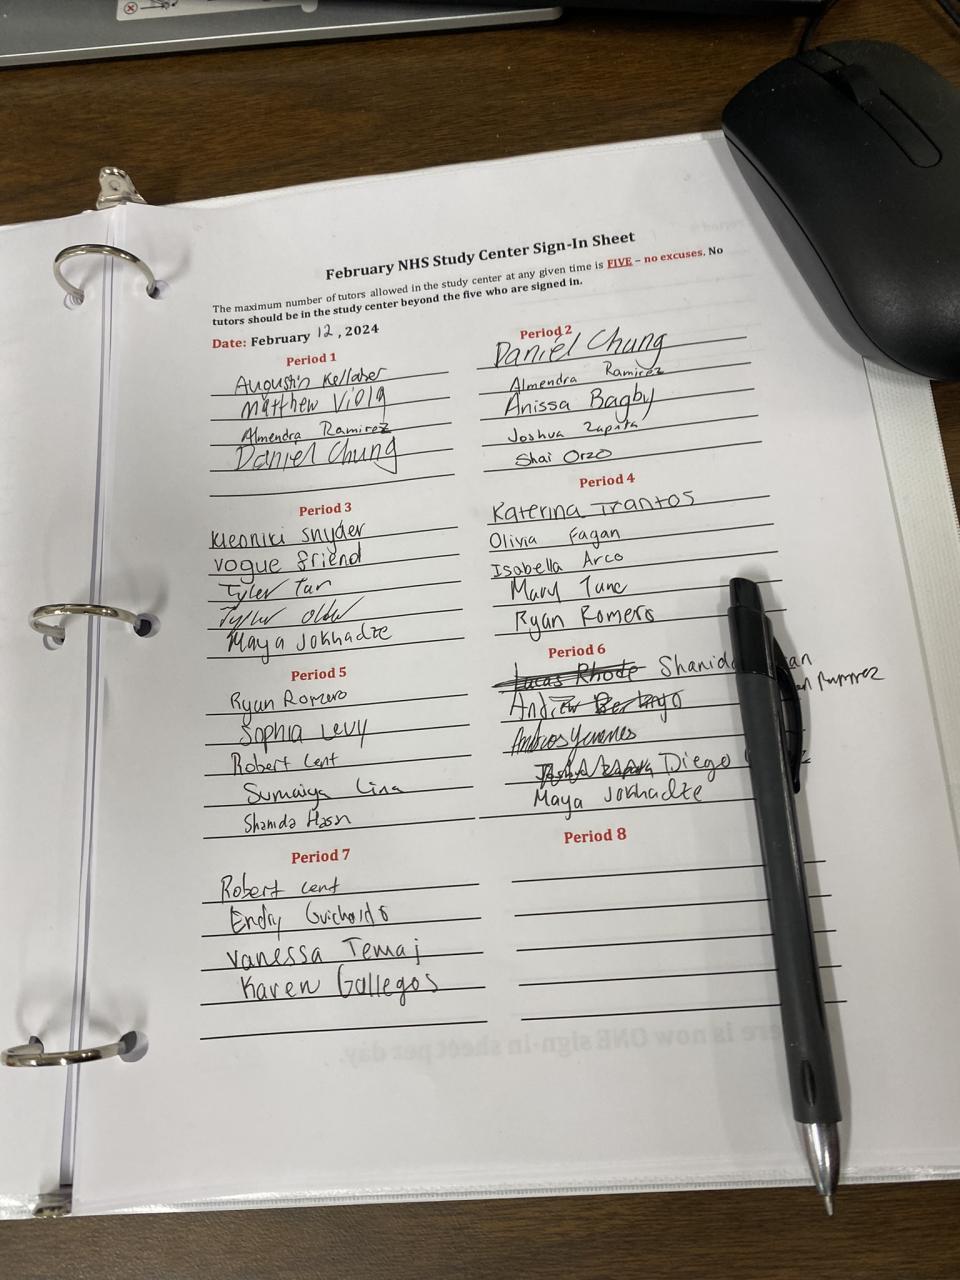 February NHS Study Center Sign-In Sheet
The maximum number of tutors allowed in the study center at any given time is FIVE – no excuses. No
tutors should be in the study center beyond the five who are signed in.
Date: February 12, 2024
Period 1
Augustin Kellaher
Matthew Viola
Almendra Ramirez
Daniel Chung
Period 2
Daniel Chung
Almendra Ramirez
Anissa Bagby
Joshua Zapata
Shai Orzo
Period 3
Kleoniki Snyder
Vogue Friend
Tyler
Tyler
Maya Jokhadze
Period 4
Katerina Trantos
Olivia Fagan
Isabella Arco
Mary
Ryan Romero
Period 5
Ryan Romero
Sophia Levy
Robert Cent
Sumaiya Lina
Shamida
Period 6
Lucas Rhode
Andrew
Ramirez
Diego
Maya Jokhadze
Period 7
Robert Cent
Endry
Vanessa Temaj
Karen Gallegos
Period 8